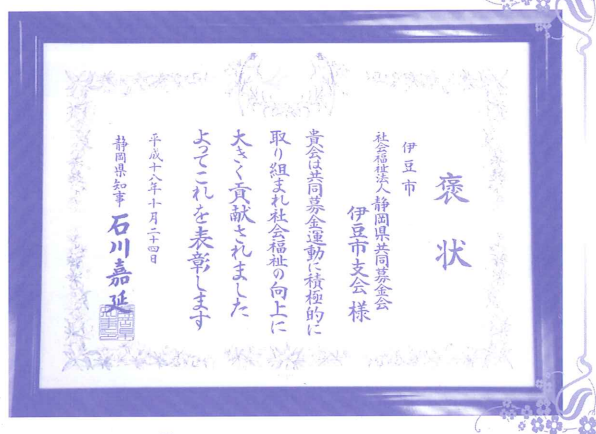 褒状
伊豆市
社会福祉法人 静岡県共同募金会
伊豆市支会 様
貴会は共同募金運動に積極的に
取り組まれ社会福祉の向上に
大きく貢献されました
よってこれを表彰します
平成十八年十月二十四日
静岡県知事 石川嘉延